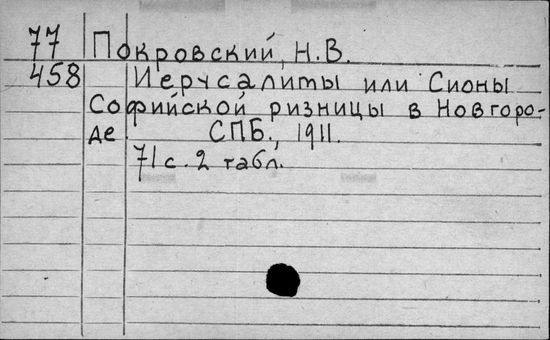 77 Покровский, Н.В.
458 Иерусалиты или Сионы
Софийской ризницы в Новгоро-
де. СПБ., 1911.
71 с. 2 табл.